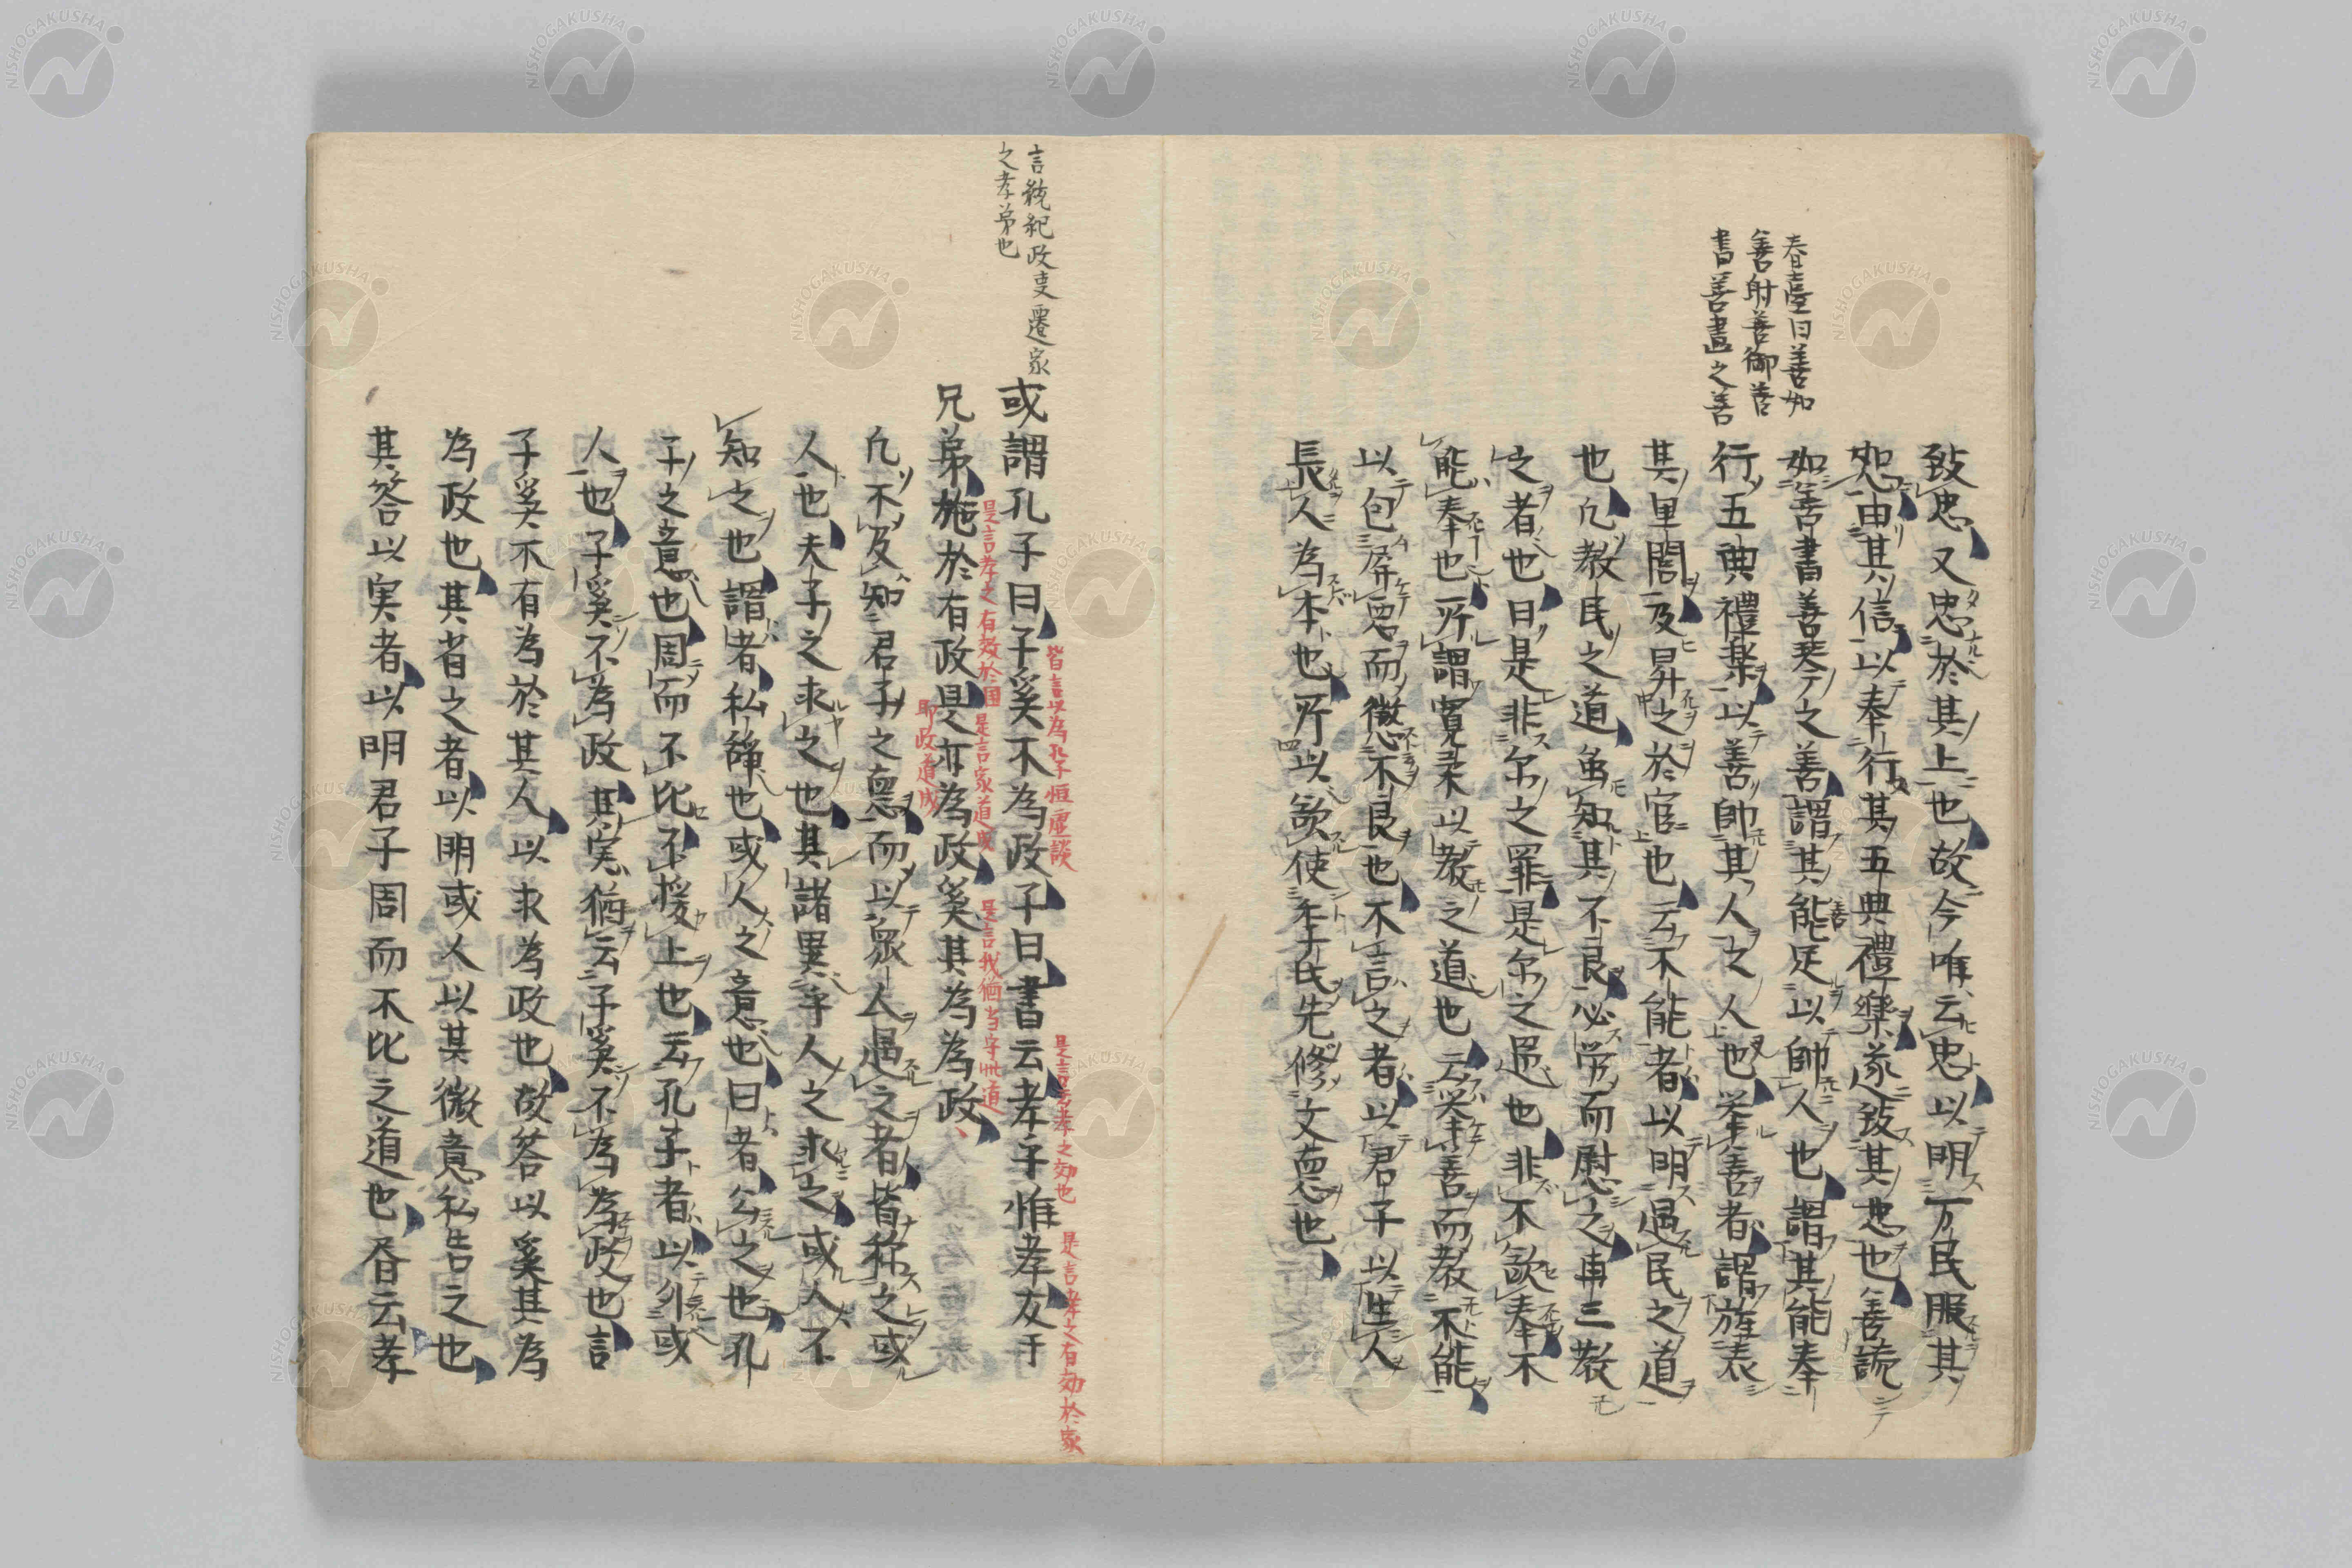 春臺曰善如
善射善御善
書善畫之善
致忠又忠於其上也故今唯云忠以明万民服其
恕由其信以奉行其五典禮樂遂致其忠也善読
如善書善琴之善謂其能足以帥人也謂其能奉
行五典禮楽以善帥其人之人也挙善者謂旌表
其里閭及昇之於官也云不能者以明遇民之道
也凡教民之道虽知其不良必労而慰之再三教
之者也曰是非尓之罪是尓之過也非不欲奉不
能奉也所謂寬柔以教之道也云挙善而教不能
以包屏悪而懲不良也不言之者以君子以生人
長人為本也所以欲使季氏先修文悳也
言統紀政事遷家
之孝弟也
或謂孔子曰子奚不為政子曰書云孝乎惟孝友于
皆言以為孔子恒虚談
是言云孝之効也
是言孝之有効於家
兄弟施於有政是亦為政奚其為為政
是言孝之有效於国
是言家道成
是言我猶当守此道
即政道成
凡不及知君子之悳而以衆人遇之者皆称之或
人也夫子之求之也其諸異乎人之求之或人不
知之也謂者私辞也或人之意也曰者公之也孔
子之意也周而不比不援上也云孔子者以外或
人也子奚不為政其実猶云子奚不為為政也言
子奚不有為於其人以求為政也故答以奚其為
為政也其者之者以明或人以其微意私告之也
其答以実者以明君子周而不比之道也昏云孝